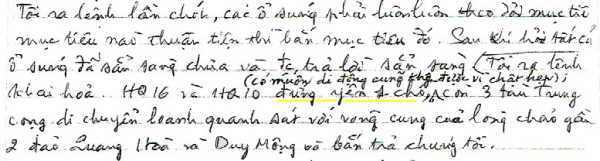 Tôi ra lệnh lần chót, các ổ súng phải luôn luôn theo dõi mục tiêu
mục tiêu nào thuận tiện thì bắn mục tiêu đó. Sau khi hỏi tất cả
ổ súng đã sẵn sàng chưa và trả lời sẵn sàng (Tôi ra lệnh
(có muốn di động cũng không được vì chật hẹp);
khai hoả. HQ 16 và HQ 10 đứng yên chờ, còn 3 tàu Trung
cộng di chuyển loanh quanh sát với vòng cung của lòng chảo gần
2 đảo Quang Hoà và Duy Mộng và bắn trả chúng tôi.